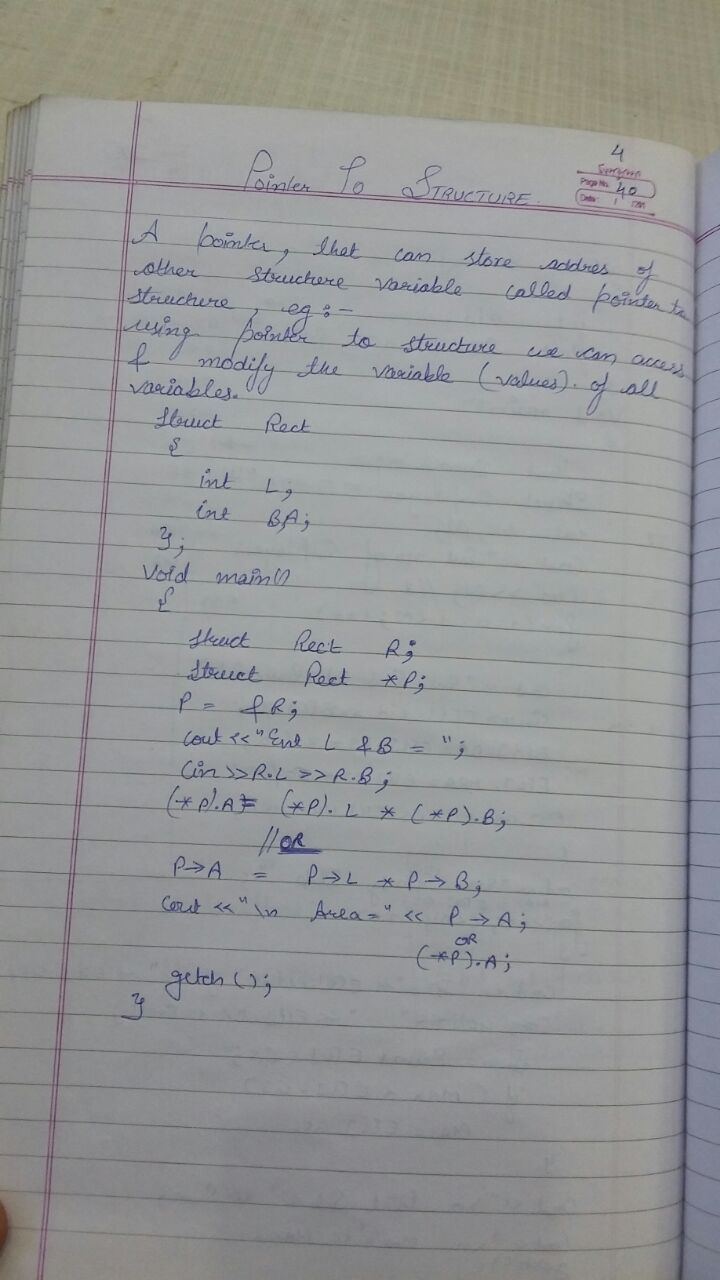 4
Page No. 40
Date: / /201
Pointer To STRUCTURE.
A pointer, that can store addres of
other structure variable called pointer to
structure, eg :-
using pointer to structure we can access
& modify the variable (values). of all
variables.
Struct Rect
{
int L;
int B,A;
};
Void main()
{
Struct Rect R;
Struct Rect *P;
P = &R;
Cout <<"Ent L &B = ";
Cin >>R.L >>R.B;
(*P).A = (*P).L * (*P).B;
//OR
P→A = P→L * P→B;
Cout <<"\n Area=" << P→A;
OR
(*P).A;
getch();
}